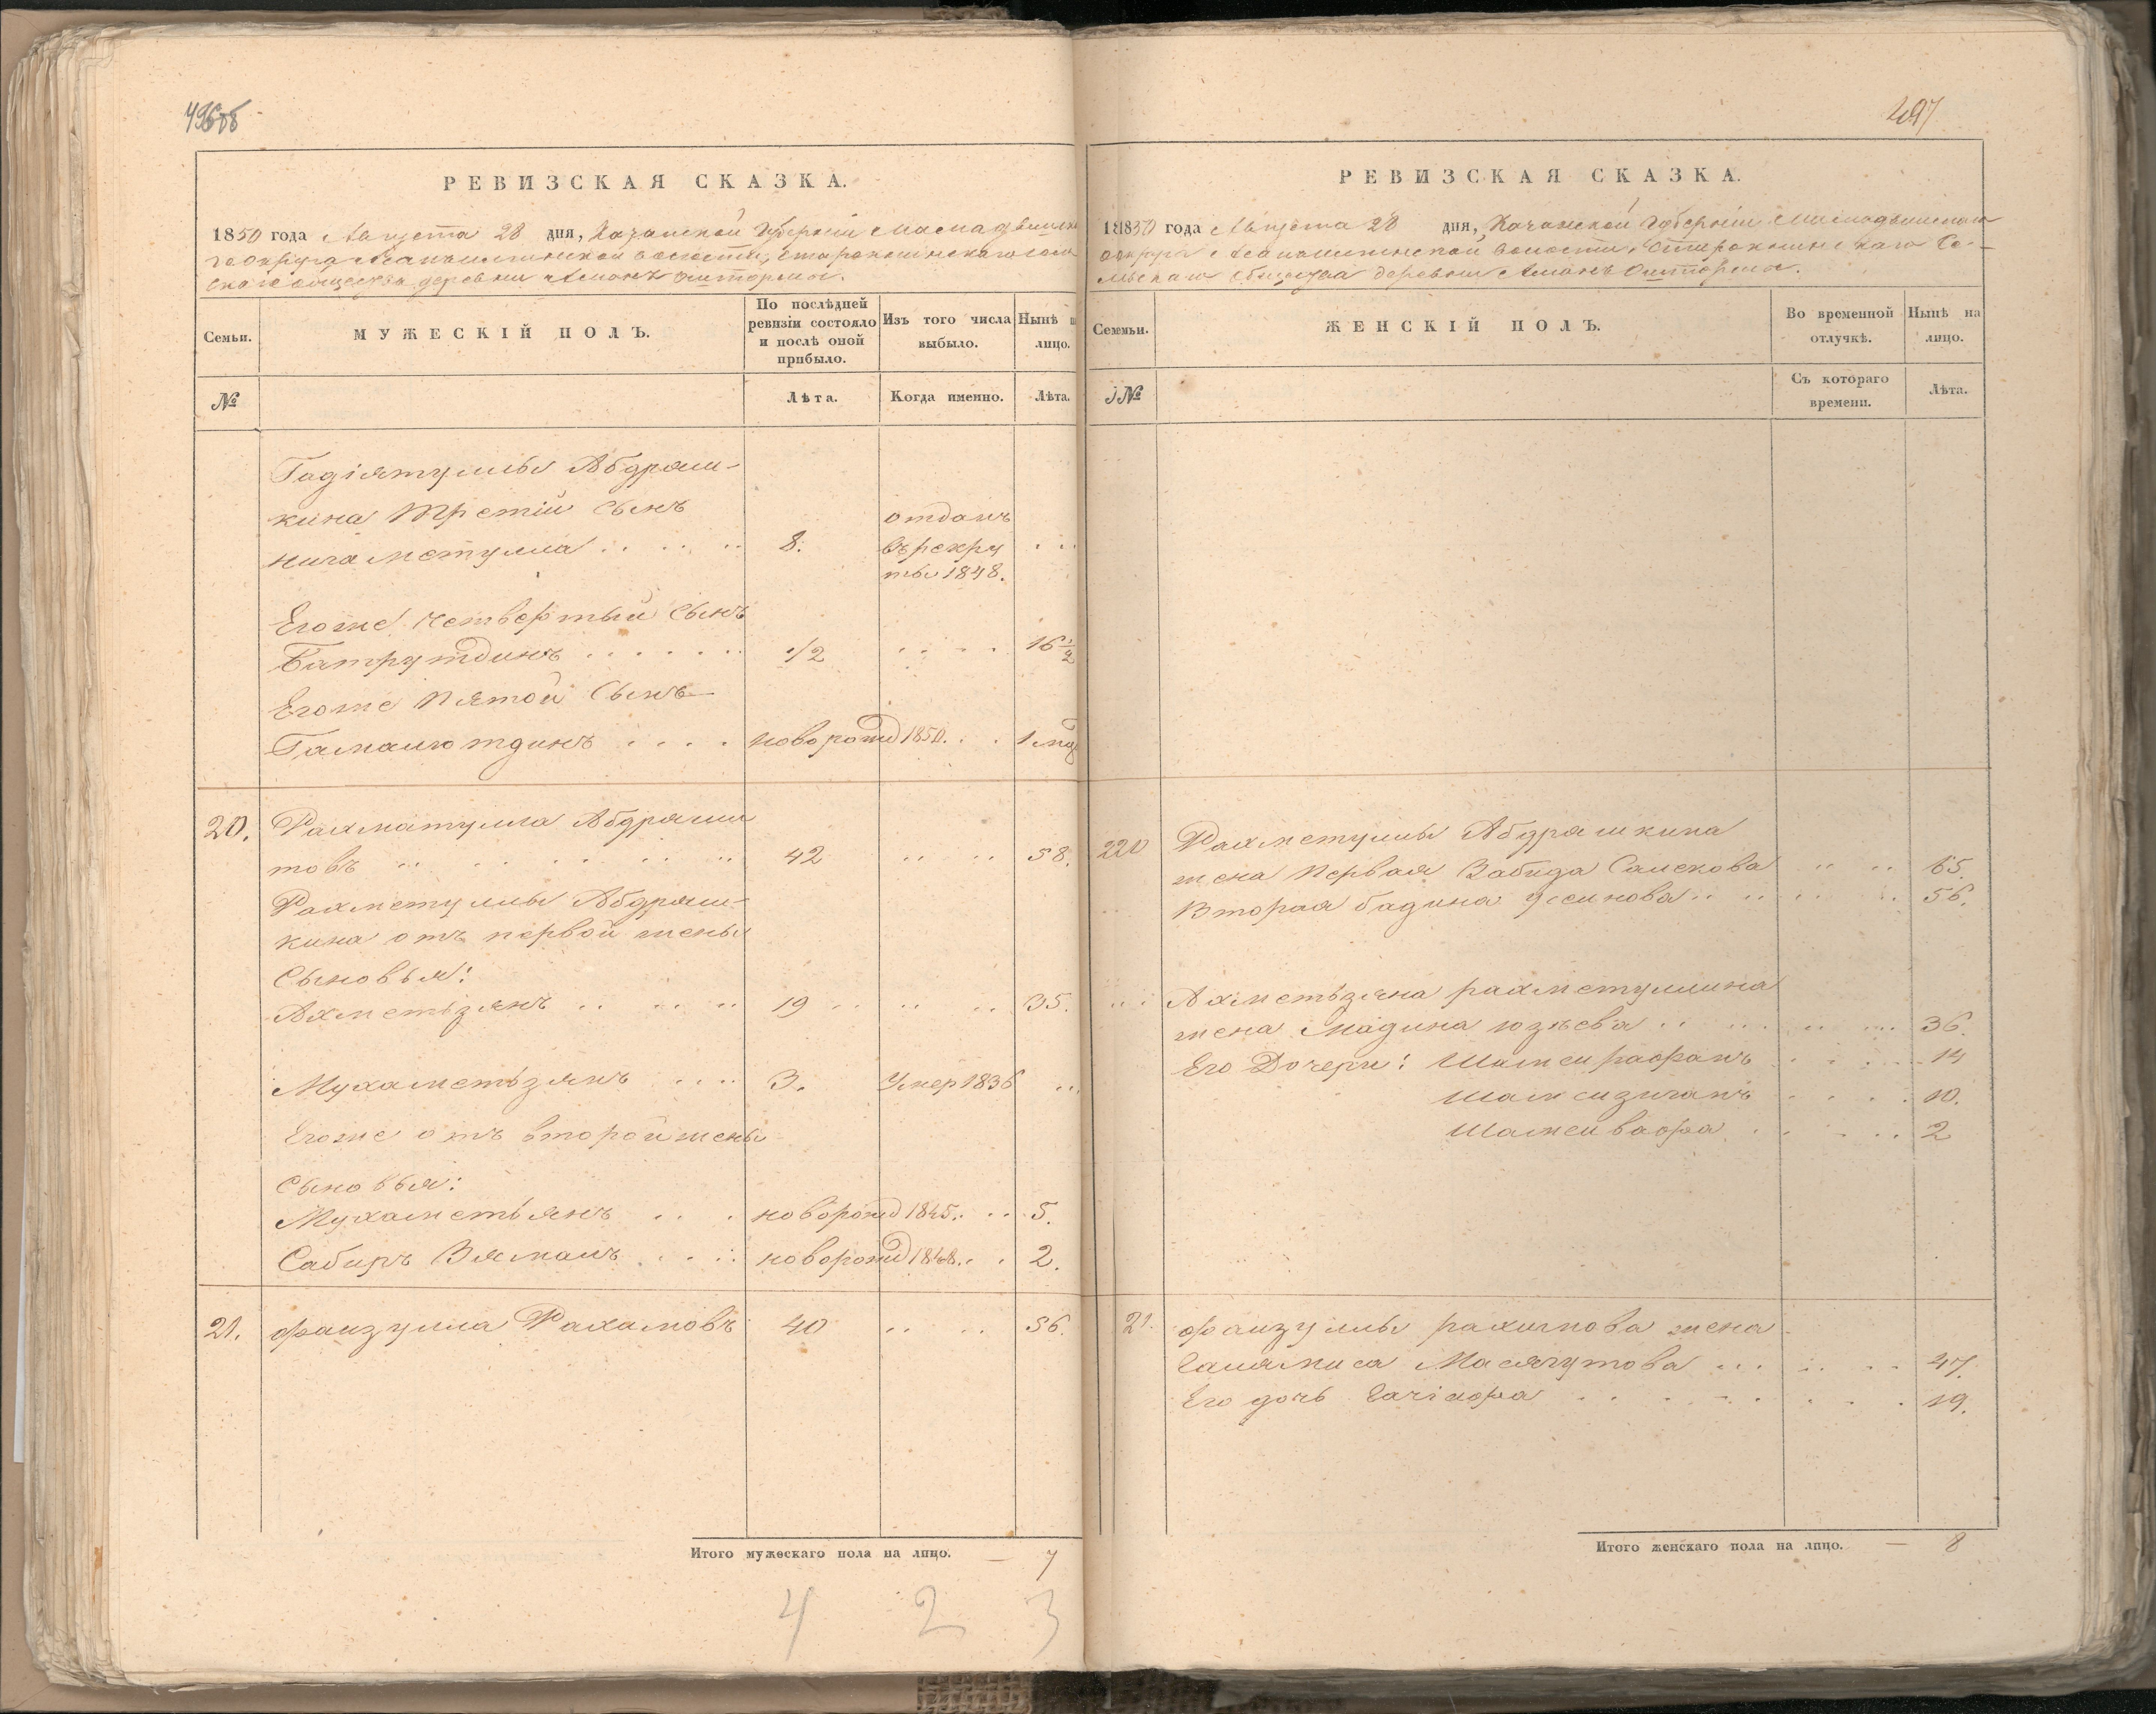 496об
РЕВИЗСКАЯ СКАЗКА.
1850 года Августа 28 дня, Казанской Губерніи Мамадышска
го округа волости, Старокминскаго сель
скаго общества деревни
Семьи.
МУЖЕСКІЙ ПОЛЪ.
По послѣдней ревизіи состояло и послѣ оной прибыло.
Изъ того числа выбыло.
Нынѣ на лицо.
№
Лѣта.
Когда именно.
Лѣта.
Гадіятуллы Абдраш-
кина Третій Сынъ
Низаметулла 8. отданъ
въ рекру
ты 1848.
Егоже четвертый Сынъ
Батрутдинъ 1/2 16 1/2
Егоже Пятой Сынъ
Гамалютдинъ новорожд 1850. 1 мѣс
20. Рахматулла Абдраши
товъ 42 58.
Рахметуллы Абдраш-
кина отъ первой жены
Сыновья:
Ахметьзянъ 19 35.
Мухаметьзянъ 3. Умер 1836
Егоже отъ второй жены
Сыновья:
Мухаметьянъ новорожд 1845. 5.
Сабиръ Зяманъ новорожд 1848. 2.
21. Фаизулла Рахамовъ 40 56.
Итого мужескаго пола на лицо. — 7
4 2 3
497
РЕВИЗСКАЯ СКАЗКА.
1850 года Августа 28 дня, Казанской Губерніи Мамадышскаго
округа волости, Старокминскаго Се-
льскаго Общества деревни
Семьи.
ЖЕНСКІЙ ПОЛЪ.
Во временной отлучкѣ.
Нынѣ на лицо.
№
Съ котораго времени.
Лѣта.
20 Рахметуллы Абдрашкина
жена Первая Забида Салекова 65.
Вторая Бадина Усинова 56.
Ахметьзяна рахметуллина
жена Мадина 36.
Его Дочери: Шамсирафанъ 14
10.
2
21. Фаизуллы рахимова жена
Галямиса Масягутова 47.
Его дочь 19.
Итого женскаго пола на лицо. — 8